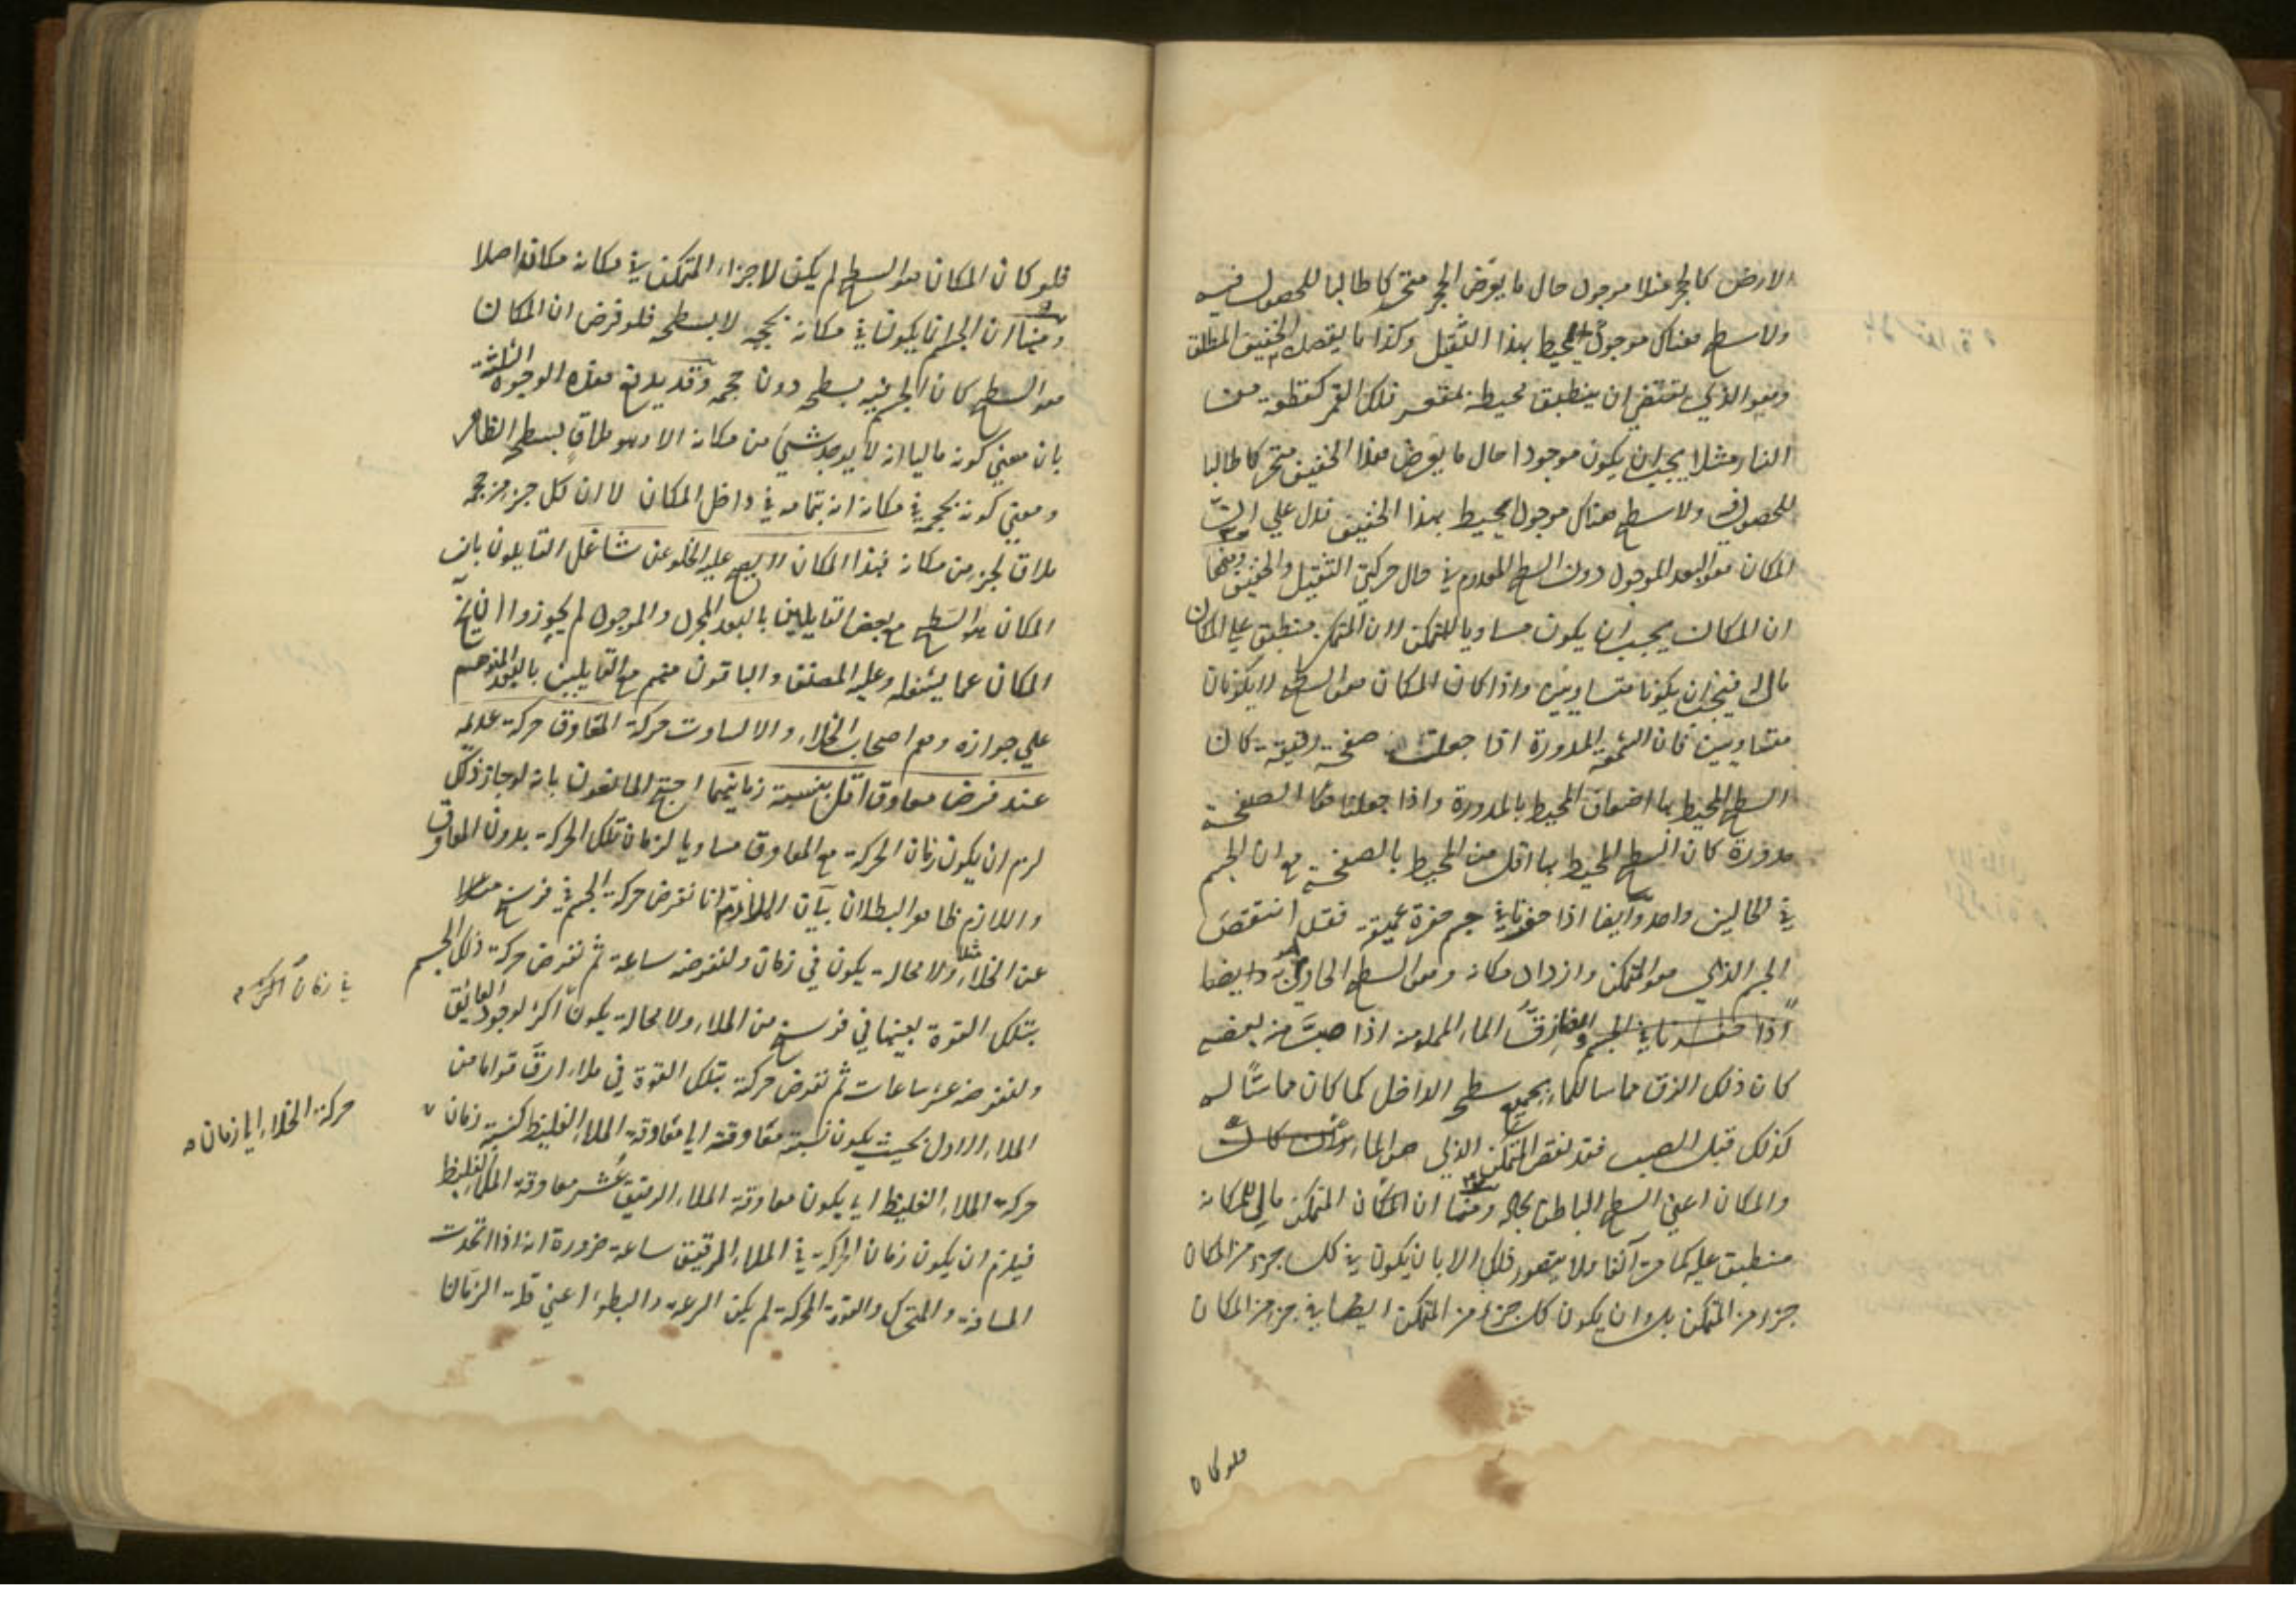 الارض كالحجر مثلا موجود حال ما يفرض الحجر متحركا طالبا للحصول فيه
ولا سطح هناك موجود محيط بهذا الثقيل وكذا ما يقصده الخفيف المطلق
وهو الذي يقتضي ان ينطبق محيطه بمقعر فلك القمر كقطعة من
النار مثلا يجب ان يكون موجودا حال ما يفرض هذا الخفيف متحركا طالبا
للحصول فيه ولا سطح هناك موجود محيط بهذا الخفيف فدل علي ان
المكان هو البعد الموجود دون السطح المعدوم في حال حركتي الثقيل والخفيف ومنها
ان المكان يجب ان يكون مساويا للمتمكن لان المتمكن منطبق علي المكان
مالئ فيجب ان يكونا متساويين واذا كان المكان هو السطح لا يكونان
متساويين فان الشمعة المدورة اذا جعلت صفحة رقيقة كان
السطح المحيط بها اضعاف المحيط بالمدورة واذا جعلنا هذا الصفحة
مدورة كان السطح المحيط بها اقل من المحيط بالصفحة مع ان الجسم
في الحالين واحد وايضا اذا حفرنا في جسم حفرة عميقة فقد انتقص
الجسم الذي هو المتمكن وازداد مكانه وهو السطح الحاوي به وايضا
زق الماء المملو منه اذا صب منه بعضه
كان ذلك الزق مماسا للماء بجميع سطحه الداخل كما كان مماسا له
كذلك قبل الصب فقد نقص المتمكن الذي هو الماء
والمكان اعني السطح الباطن بحاله ومنها ان المتمكن مالئ لمكانه
منطبق عليه كما مر آنفا ولا يتصور ذلك الا بان يكون في كل جزء من المكان
جزء من المتمكن بل وان يكون كل جزء من المتمكن ايضا في جزء من المكان
فلو كان
فلو كان المكان هو السطح لم يكن لاجزاء المتمكن في مكانه مكانا اصلا
ومنها ان الجسم انما يكون في مكانه بحجمه لا بسطحه فلو فرض ان المكان
هو السطح كان الجسم فيه بسطحه دون حجمه وقد يدفع هذه الوجوه الثلثة
بان معني كونه ماليا انه لا يوجد شئ من مكانه الا وهو ملاق لسطحه الظاهر
ومعني كونه بحجمه في مكانه انه بتمامه في داخل المكان لا ان لكل جزء من حجمه
ملاق لجزء من مكانه فهذا المكان لا يصح عليه الخلو عن شاغل القايلون بان
المكان هو السطح مع بعض القايلين بالبعد المجرد والموجود لم يجوزوا ان يخلو
المكان عما يشغله وعليه المصنف والباقون منهم مع القايلين بالبعد المتوهم
علي جوازه وهم اصحاب الخلاء والا لساوت حركة المعاوق حركة عديمه
عند فرض معاوق اقل بنسبة زمانيهما احتج المانعون بانه لو جاز ذلك
لزم ان يكون زمان الحركة مع المعاوق مساويا لزمان تلك الحركة بدون المعاوق
واللازم ظاهر البطلان بيان الملازمة انا نفرض حركة الجسم في فرسخ مثلا
من الخلاء ولا محالة يكون في زمان ولنفرضه ساعة ثم نفرض حركة ذلك الجسم
بتلك القوة بعينها في فرسخ من الملاء ولا محالة يكون اكثر لوجود العائق
ولنفرضه عشر ساعات ثم نفرض حركته بتلك القوة في ملاء ارق قواما من
الملاء الاول بحيث يكون نسبة معاوقته الي معاوقة الملاء الغليظ كنسبة زمان
حركة الملاء الغليظ اي يكون معاوقة الملاء الرقيق عشر معاوقة الملاء الغليظ
فيلزم ان يكون زمان الحركة في الملاء الرقيق ساعة ضرورة انه اذا اتحدت
المسافة والمتحرك والقوة المحركة لم يكن السرعة والبطوء اعني قلة الزمان
في زمان اكثر
حركة الخلاء الي زمان